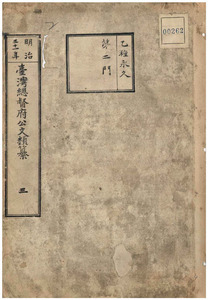 00262
乙種永久
第二門
明治
三十一年
臺灣總督府公文類纂
三